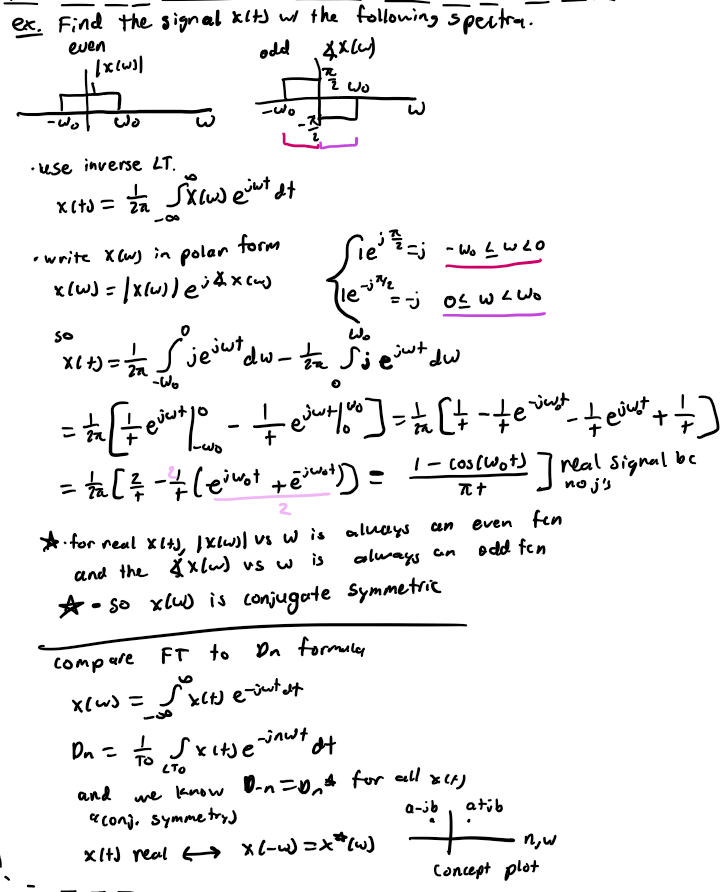 ex. Find the signal x(t) w/ the following spectra.
even
|x(ω)|
-ω₀ ω₀ ω
odd ∡x(ω)
π/2
-ω₀ ω₀ ω
-π/2
·use inverse LT.
x(t) = 1/2π ∫_{-∞}^{∞} X(ω) e^{jωt} dt
·write x(ω) in polar form
x(ω) = |x(ω)| e^{j∡x(ω)}
{ 1e^{jπ/2} = j -ω₀ ≤ ω < 0
1e^{-jπ/2} = -j 0 ≤ ω < ω₀
so
x(t) = 1/2π ∫_{-ω₀}^{0} je^{jωt} dω - 1/2π ∫_{0}^{ω₀} j e^{jωt} dω
= 1/2π [ 1/t e^{jωt} |_{-ω₀}^{0} - 1/t e^{jωt} |_{0}^{ω₀} ] = 1/2π [ 1/t - 1/t e^{-jω₀t} - 1/t e^{jω₀t} + 1/t ]
= 1/2π [ 2/t - 2/t ( e^{jω₀t} + e^{-jω₀t} / 2 ) ] = 1 - cos(ω₀t) / πt ] real signal bc
no j's
★·for real x(t), |x(ω)| vs ω is always an even fcn
and the ∡x(ω) vs ω is always an odd fcn
★- so x(ω) is conjugate symmetric
compare FT to Dn formula
x(ω) = ∫_{-∞}^{∞} x(t) e^{-jωt} dt
Dn = 1/T0 ∫_{<T0} x(t) e^{-jnωt} dt
and we know D-n = Dn* for all x(t)
(conj. symmetry)
x(t) real ⟷ x(-ω) = x*(ω)
a-jb a+jb
n,ω
Concept plot